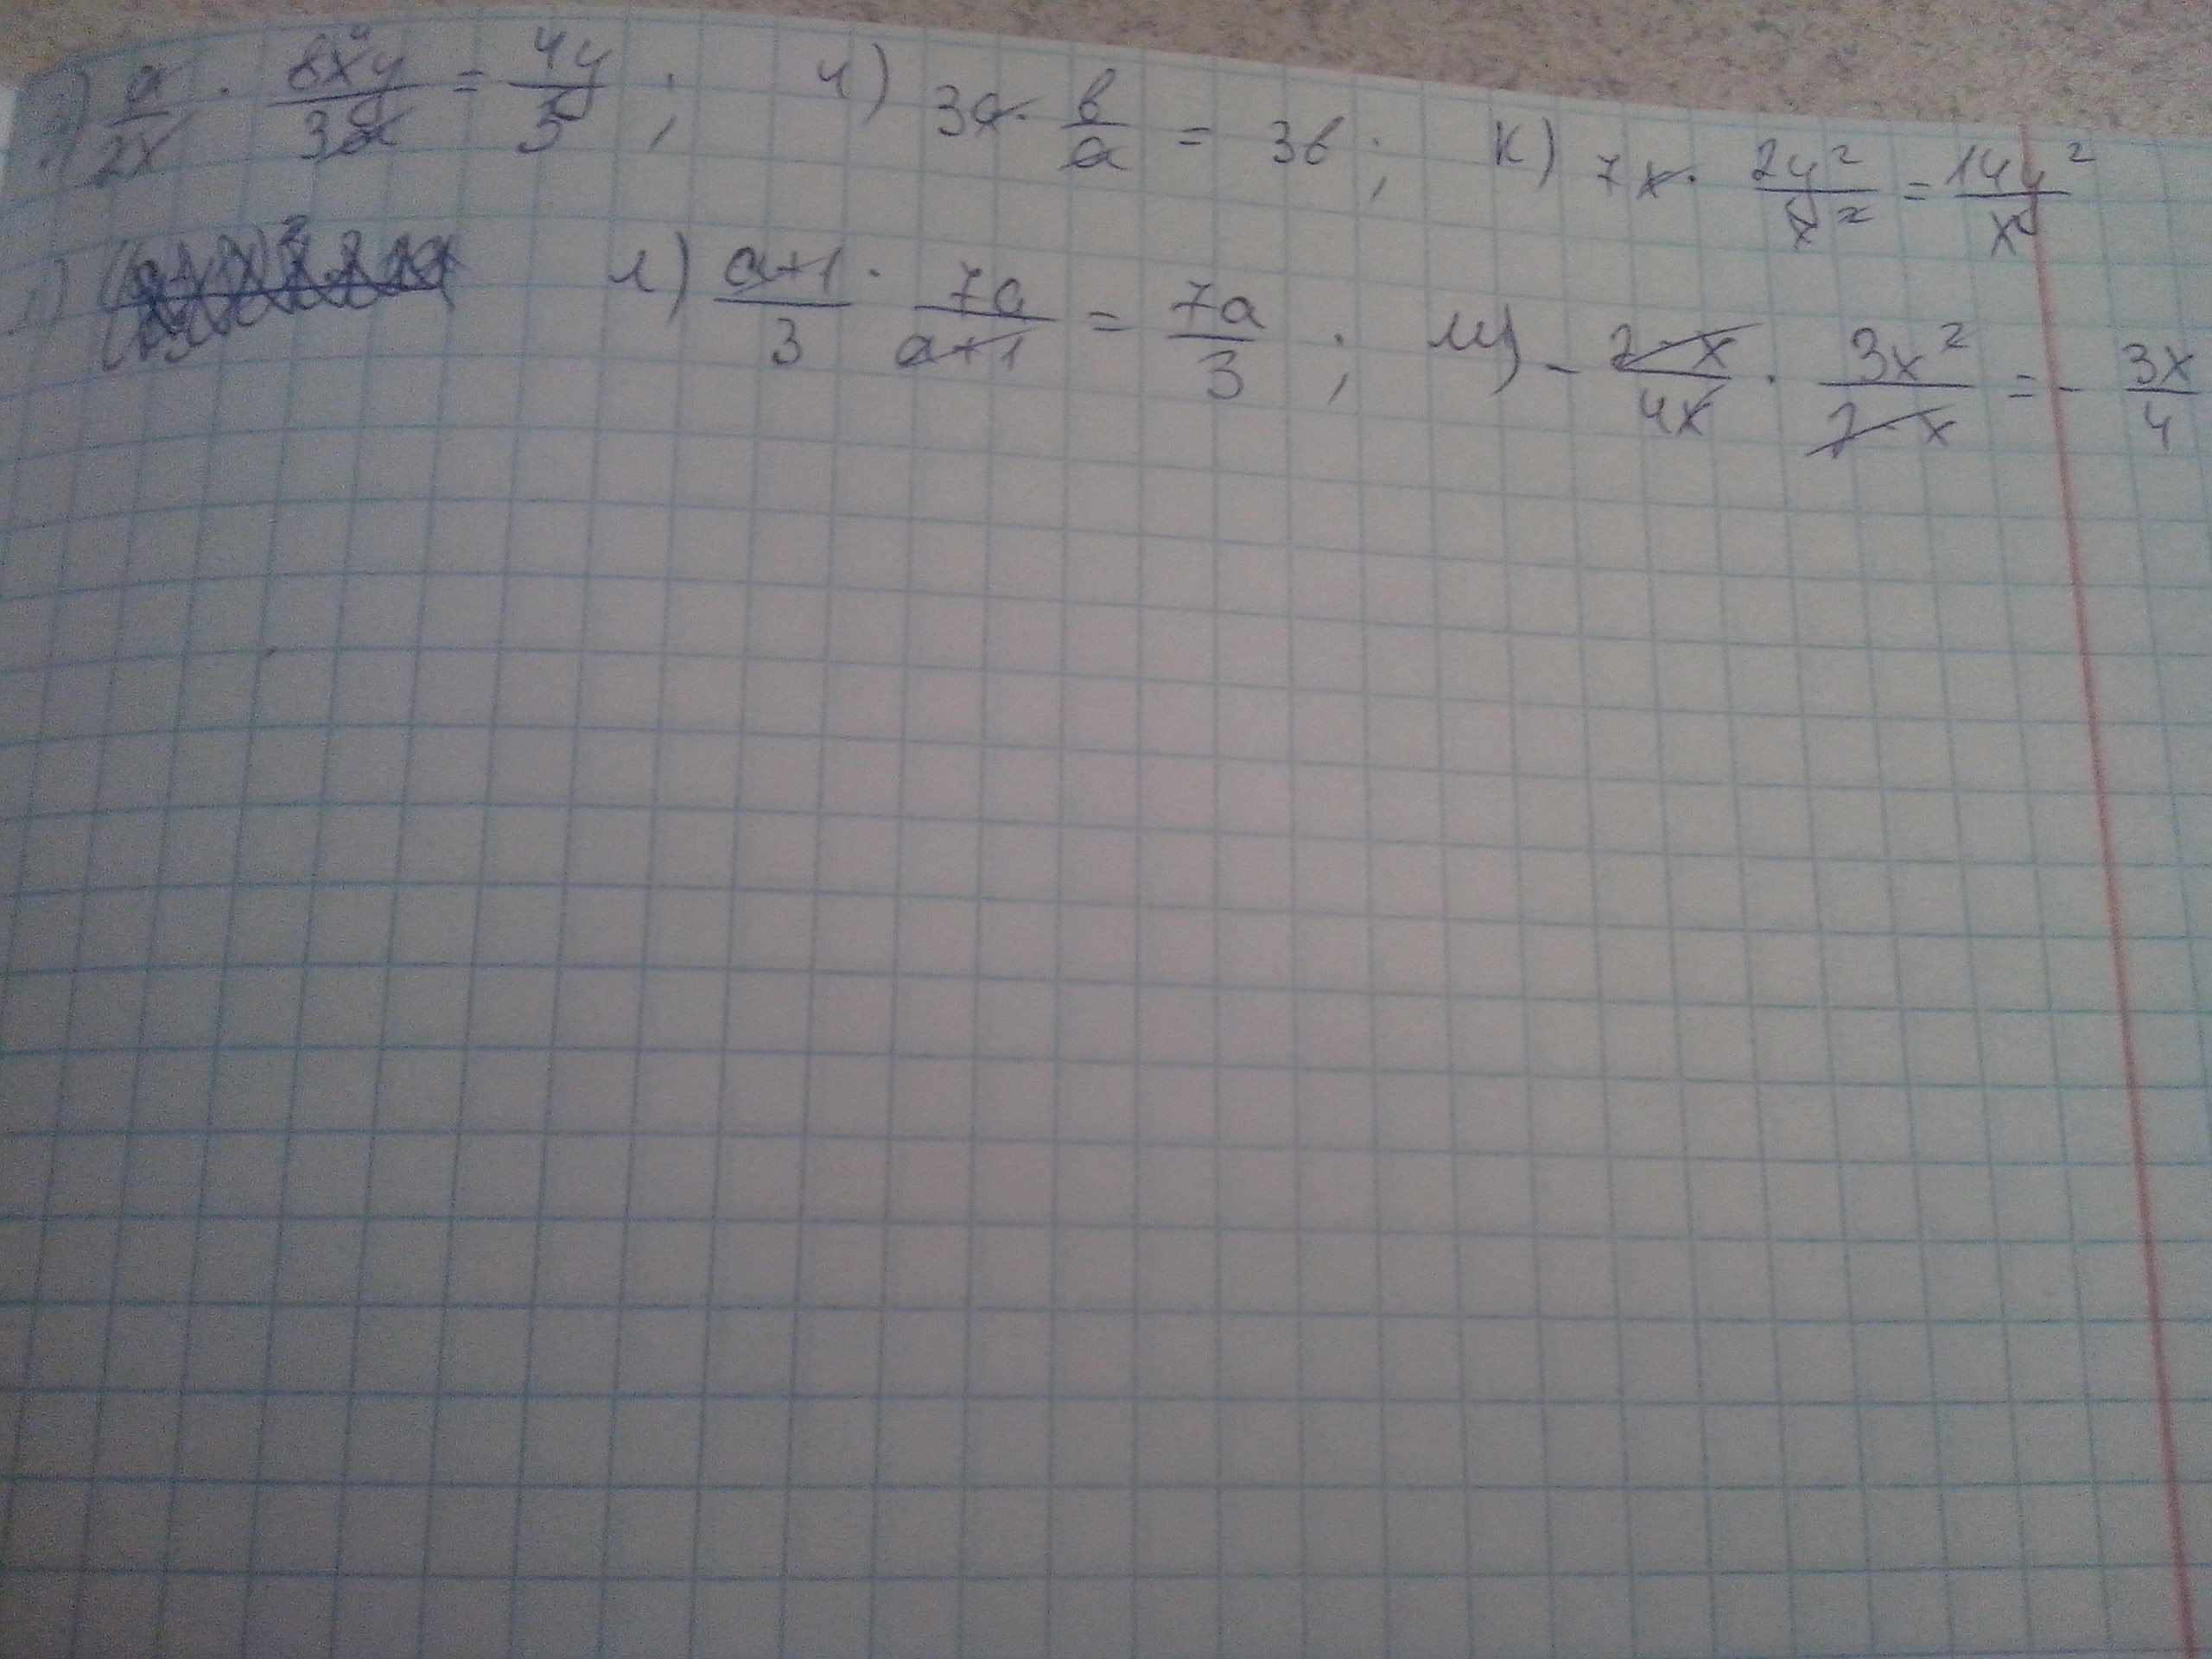 a/2x · 8xy/3a = 4y/3; и) 3a · b/a = 3b; к) 7x · 2y²/x² = 14y²/x
л) (a+1)/3 · 7a/(a+1) = 7a/3; м) - (2-x)/4x · 3x²/(2-x) = - 3x/4